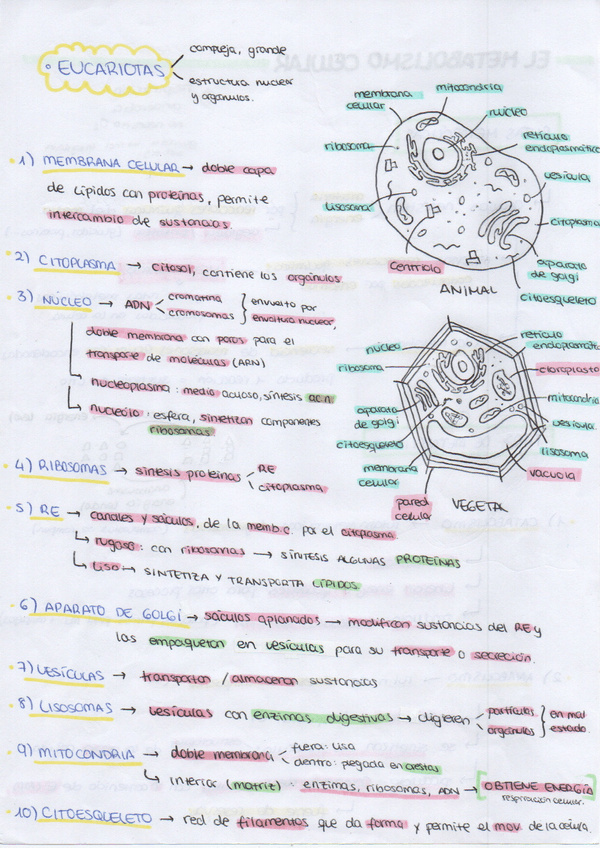 EUCARIOTAS
compleja, grande
estructura nuclear
y orgánulos.
membrana
celular
mitocondria
núcleo
ribosoma
retículo
endoplasmático
vesícula
lisosoma
citoplasma
centriolo
aparato
de golgi
citoesqueleto
ANIMAL
1) MEMBRANA CELULAR → doble capa
de lípidos con proteínas, permite
intercambio de sustancias.
2) CITOPLASMA → citosol, contiene los orgánulos
3) NÚCLEO → ADN < cromatina
cromosomas } envuelto por
envoltura nuclear,
doble membrana con poros para el
transporte de moléculas (ARN)
nucleoplasma: medio acuoso, síntesis ac.n.
nucleolo: esfera, sintetizan componentes
ribosomas
núcleo
ribosoma
retículo
endoplasmát
cloroplasto
mitocondria
aparato
de golgi
vesícula
citoesqueleto
lisosoma
membrana
celular
vacuola
pared
celular
VEGETAL
4) RIBOSOMAS → síntesis proteínas < RE
citoplasma
5) RE → canales y sáculos, de la memb.c. por el citoplasma
↳ rugoso: con ribosomas → SÍNTESIS ALGUNAS PROTEÍNAS
↳ liso → SINTETIZA Y TRANSPORTA LÍPIDOS
6) APARATO DE GOLGI → sáculos aplanados → modifican sustancias del RE y
las empaquetan en vesículas para su transporte o secreción.
7) VESÍCULAS → transportan / almacenan sustancias
8) LISOSOMAS → vesículas con enzimas digestivas → digieren < partículas
orgánulos } en mal
estado.
9) MITOCONDRIA → doble membrana < fuera: lisa
dentro: plegada en crestas
↳ interior (matriz): enzimas, ribosomas, ADN → [OBTIENE ENERGÍA
respiración celular.
10) CITOESQUELETO → red de filamentos que da forma y permite el mov. de la célula.